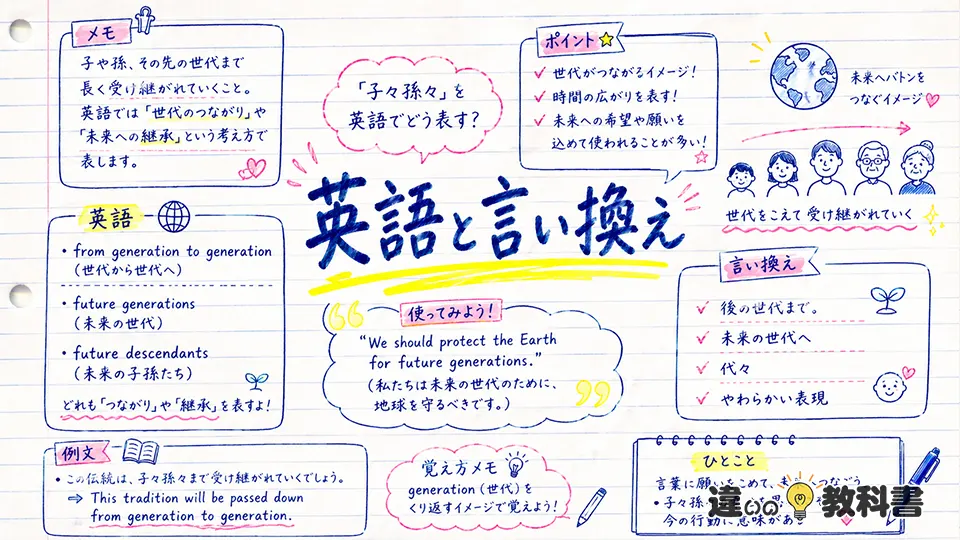 メモ
子や孫、その先の世代まで
長く受け継がれていくこと。
英語では「世代のつながり」や
「未来への継承」という考え方で
表します。
「子々孫々」を
英語でどう表す?
ポイント
世代がつながるイメージ!
時間の広がりを表す!
未来への希望や願いを
込めて使われることが多い!
未来へバトンを
つなぐイメージ
世代をこえて受け継がれていく
英語と言い換え
英語
・from generation to generation
(世代から世代へ)
・future generations
(未来の世代)
・future descendants
(未来の子孫たち)
どれも「つながり」や「継承」を表すよ!
使ってみよう!
“We should protect the Earth
for future generations.”
(私たちは未来の世代のために、
地球を守るべきです。)
言い換え
後の世代まで。
未来の世代へ
代々
やわらかい表現
例文
・この伝統は、子々孫々まで受け継がれていくでしょう。
⇒ This tradition will be passed down
from generation to generation.
覚え方メモ
generation(世代)を
くり返すイメージで覚えよう!
ひとこと
言葉に願いをこめて、
・子々孫
今の行動に意味があ
違いの教科書